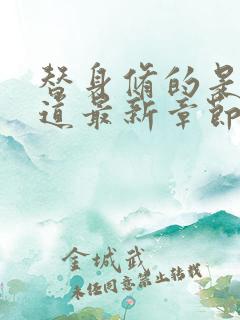 替身修的是
道最新章節
金城武
未经同意禁止转载